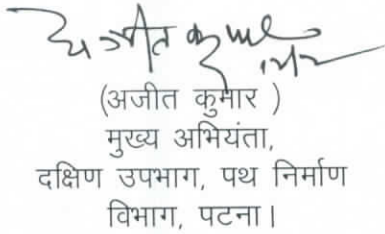 अजीत कुमार
(अजीत कुमार )
मुख्य अभियंता,
दक्षिण उपभाग, पथ निर्माण
विभाग, पटना।